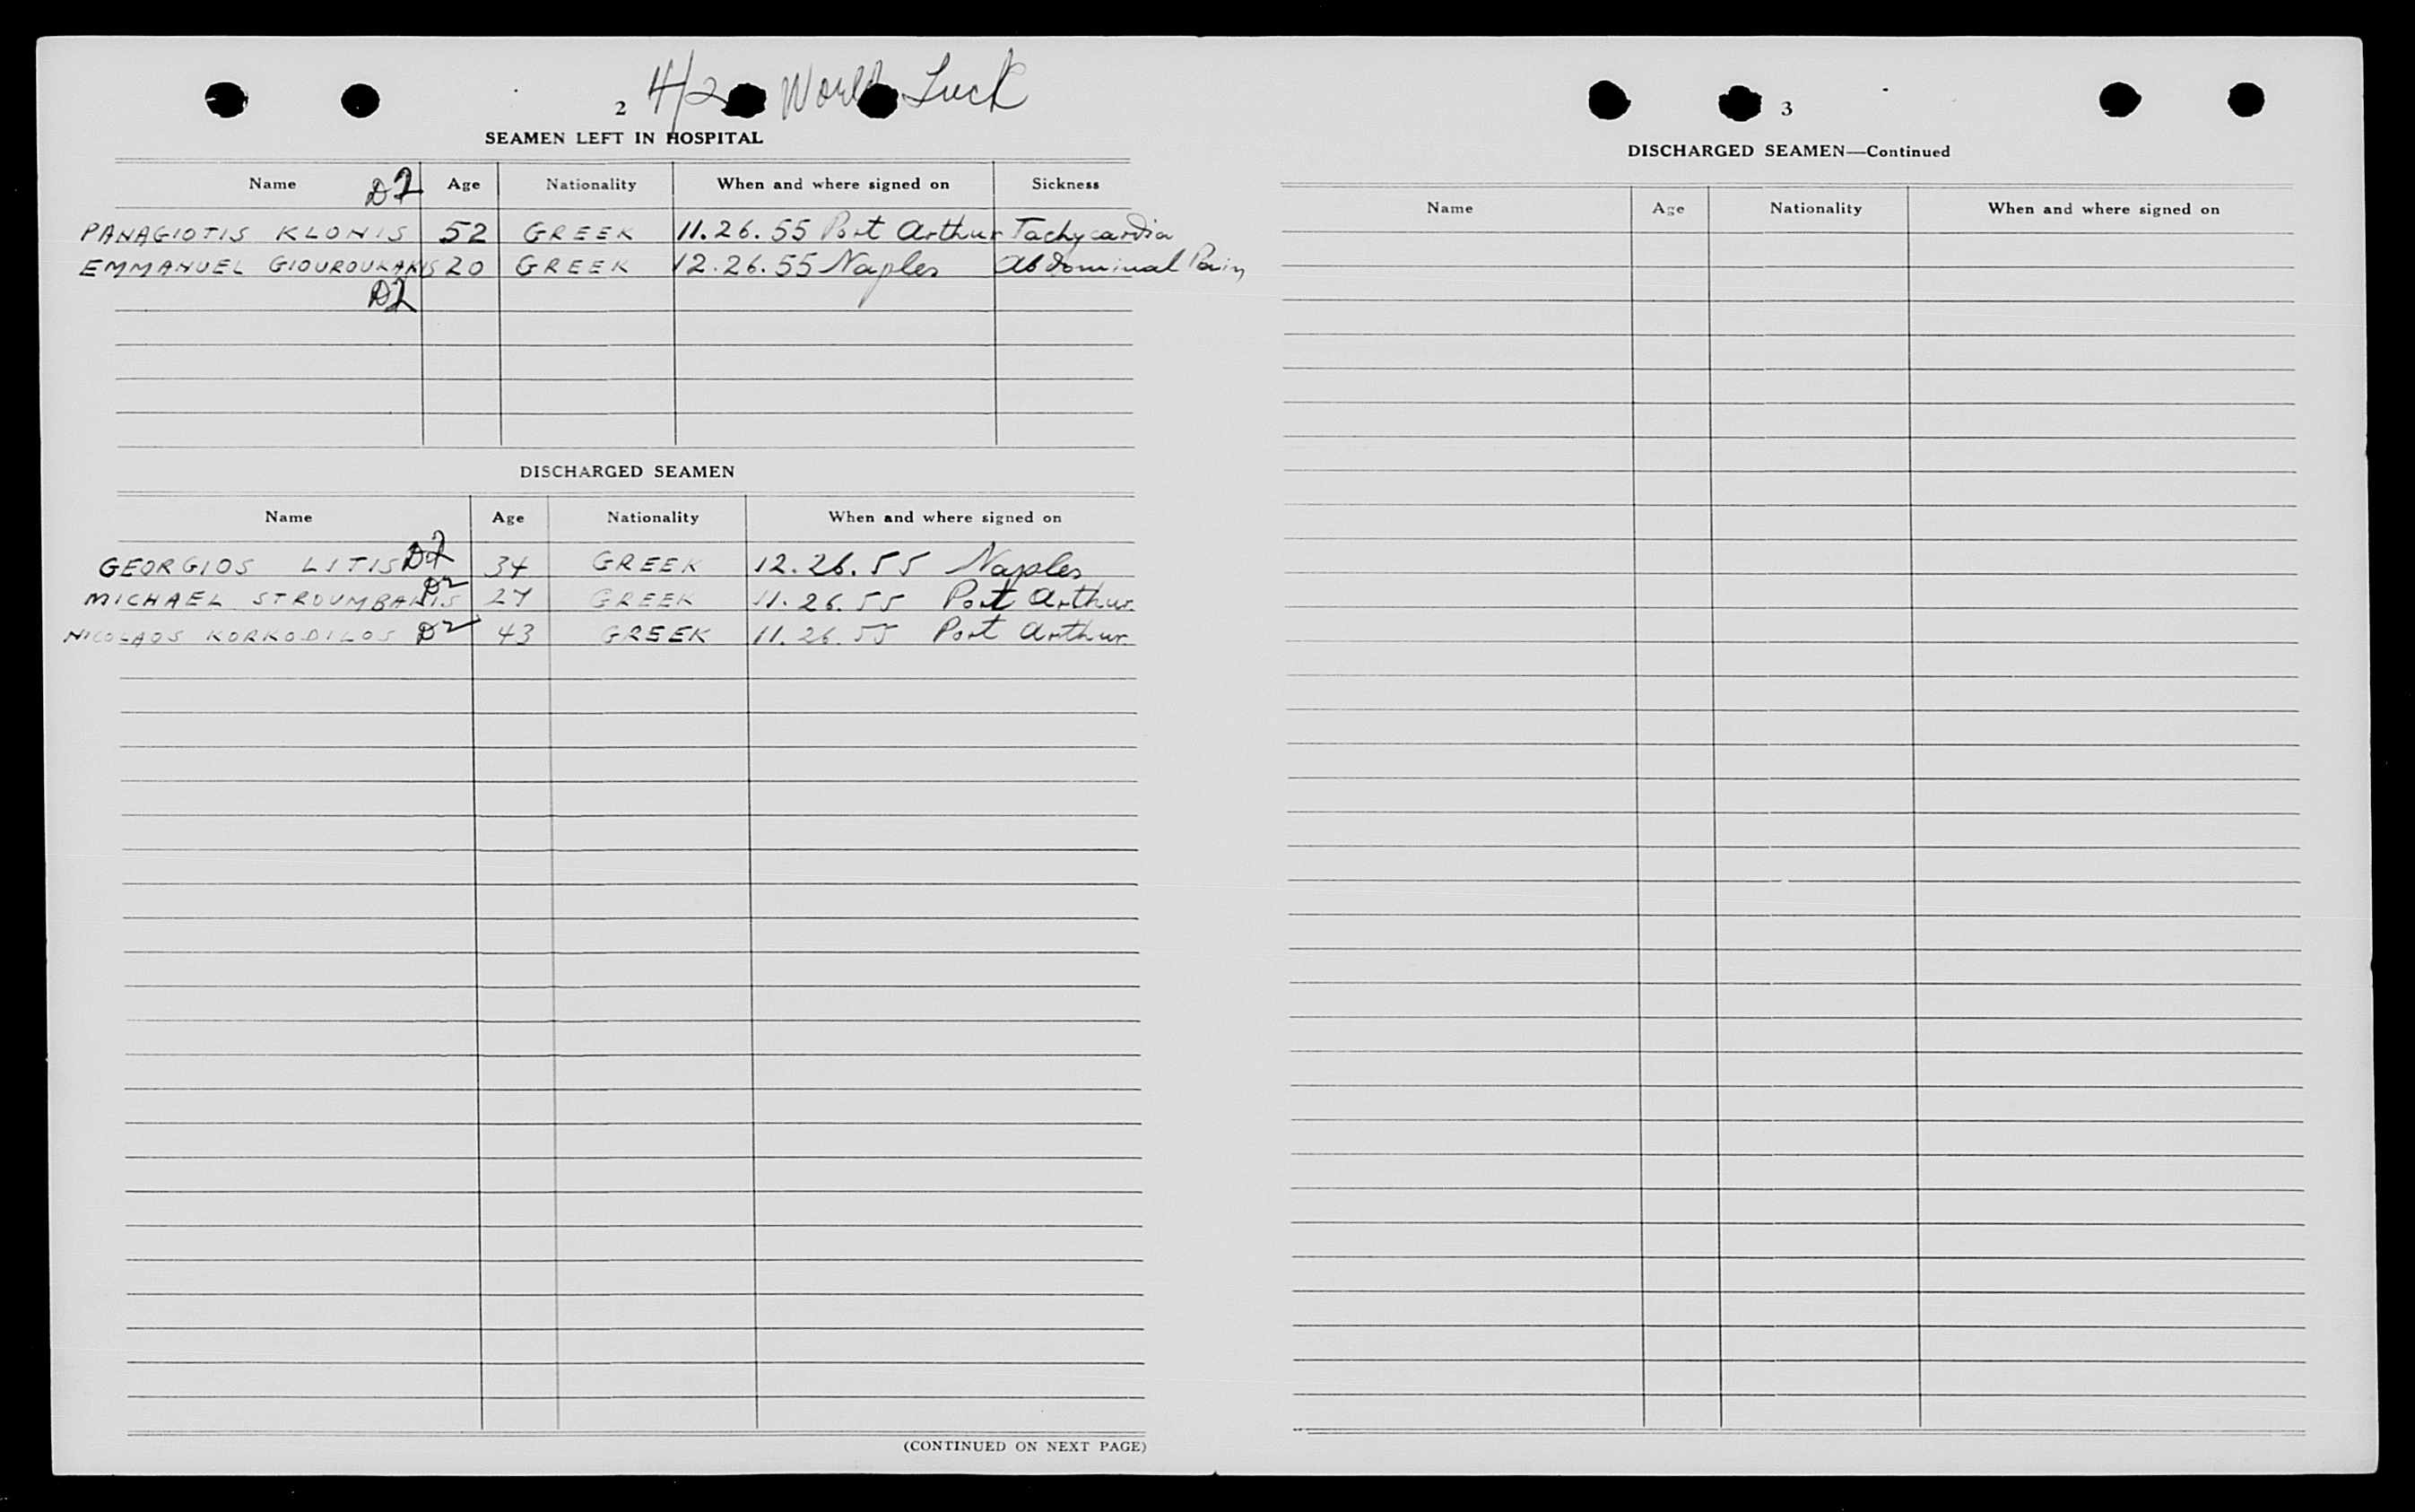 2 4/2 World Luck
SEAMEN LEFT IN HOSPITAL
Name D2 Age Nationality When and where signed on Sickness
PANAGIOTIS KLONIS 52 GREEK 11.26.55 Port Arthur Tachycardia
EMMANUEL GIOUROUKAKIS 20 GREEK 12.26.55 Naples Abdominal Pain
D2
DISCHARGED SEAMEN
Name Age Nationality When and where signed on
GEORGIOS LITIS D2 34 GREEK 12.26.55 Naples
MICHAEL STROUMBAKIS D2 27 GREEK 11.26.55 Port Arthur
NICOLAOS KORKODILOS D2 43 GREEK 11.26.55 Port Arthur
(CONTINUED ON NEXT PAGE)
3
DISCHARGED SEAMEN—Continued
Name Age Nationality When and where signed on